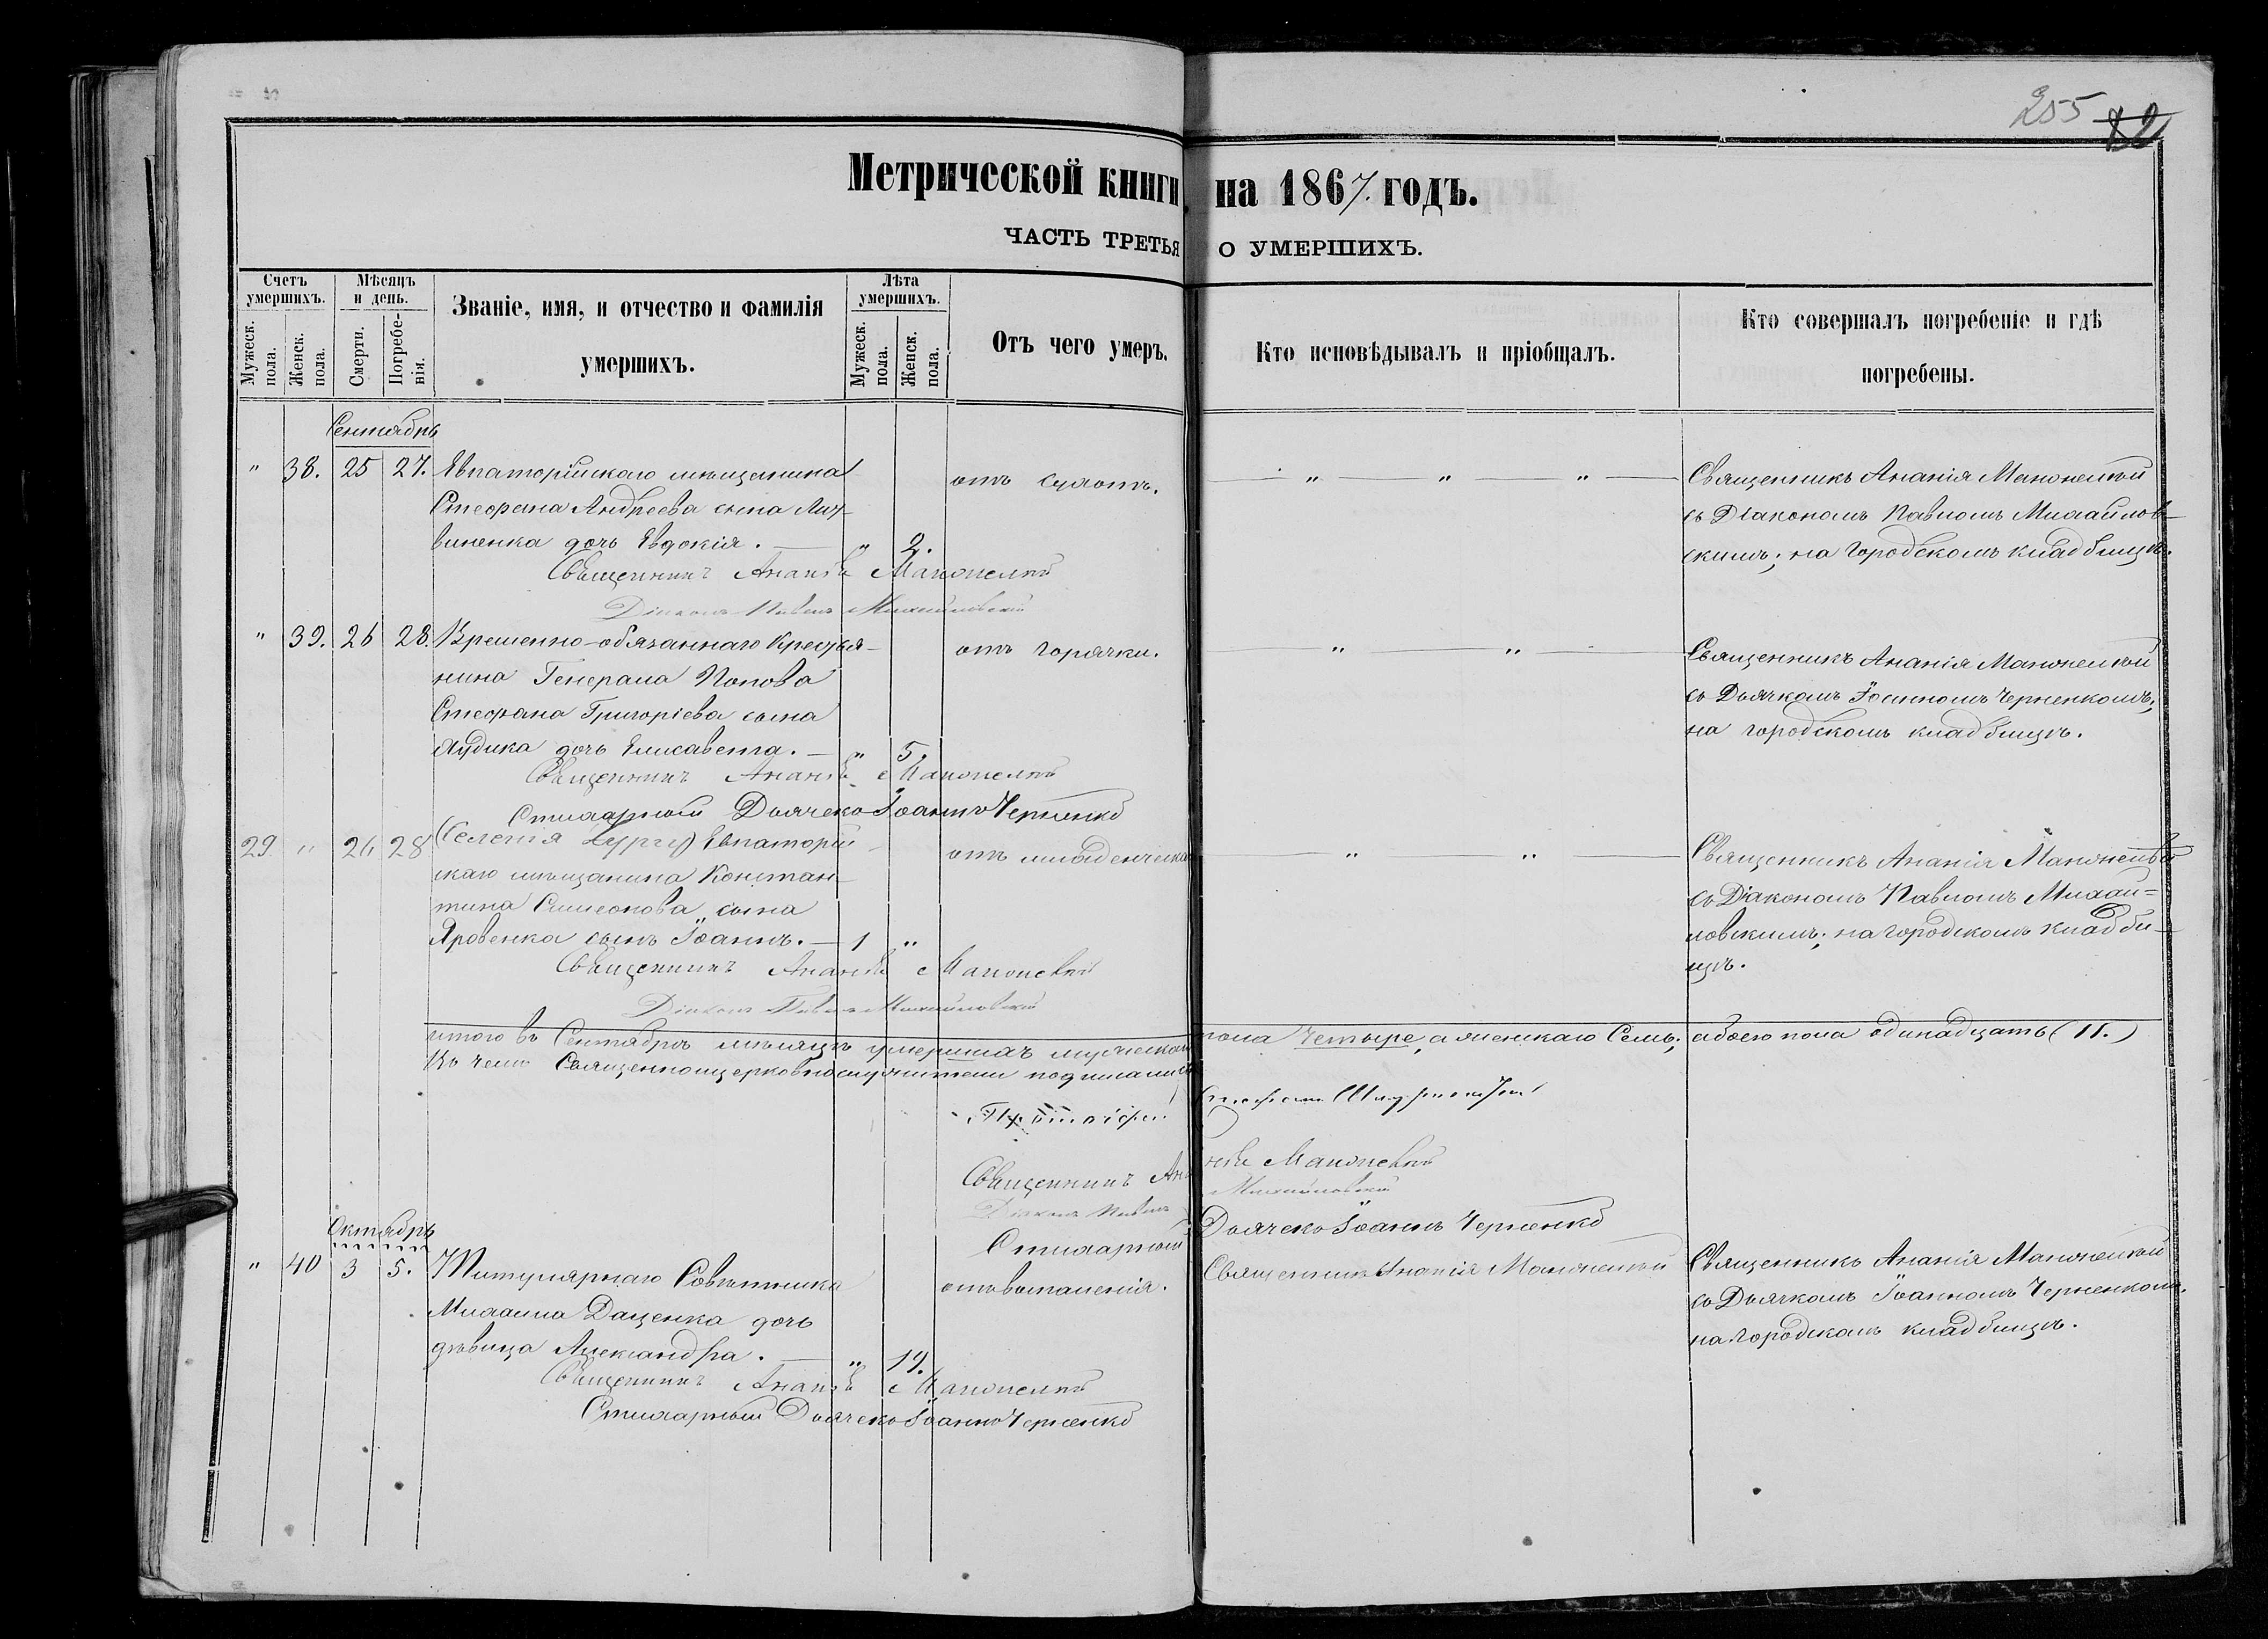 255 82
Метрической книги на 1867. годъ.
ЧАСТЬ ТРЕТЬЯ О УМЕРШИХЪ.
Счетъ умершихъ.
Мужеск. пола.
Женск. пола.
Мѣсяцъ и день.
Смерти.
Погребенія.
Званіе, имя, и отчество и фамилія умершихъ.
Лѣта умершихъ.
Мужеск. пола.
Женск. пола.
Отъ чего умеръ.
Кто исповѣдывалъ и пріобщалъ.
Кто совершалъ погребеніе и гдѣ погребены.
Сентябрь
" 38. 25 27. Евпаторійскаго мѣщанина
Стефана Андреева сына Лит-
виненка дочь Евдокія. — " 2.
отъ сухот.
— " — " — " —
Священникъ Ананія Маноцкій
съ Діакономъ Павломъ Михайлов-
скимъ; на городскомъ кладбищѣ.
Священникъ Ананія
Діаконъ Павелъ Михайловскій
" 39. 26 28. Временно-обязаннаго крестья-
нина Генерала Попова
Стефана Григоріева сына
дочь Елисавета. — " 5.
отъ горячки.
— " — " —
Священникъ Ананія
съ Дьячкомъ Іоанномъ Черненкомъ;
на городскомъ кладбищѣ.
Священникъ Ананія
Стихарный Дьячекъ Іоаннъ Черненко
29. " 26 28 (Селенія ) Евпаторій-
скаго мѣщанина Констан-
тина Симеонова сына
Яровенка сынъ Іоаннъ. — 1 "
отъ младенческа
— " — " —
Священникъ Ананія
съ Діакономъ Павломъ Михай-
ловскимъ; на городскомъ кладби-
щѣ.
Священникъ Ананія
Діаконъ Павелъ Михайловскій
Итого въ Сентябрѣ мѣсяцѣ умершихъ мужеска пола Четыре, а женскаго Семь; обоего пола одинадцать (11.)
Въ чемъ Священноцерковнослужители подписались
Протоіерей Стефанъ
Священникъ Ананія
Діаконъ Павелъ Михайловскій
Стихарный Дьячекъ Іоаннъ Черненко
Октябрь
" 40 3 5. Титулярнаго Совѣтника
Михаила Даценка дочь
дѣвица Александра. — " 19.
отъ воспаленія.
Священникъ Ананія
Священникъ Ананія
съ Дьячкомъ Іоанномъ Черненкомъ.
на городскомъ кладбищѣ.
Священникъ Ананія
Стихарный Дьячекъ Іоаннъ Черненко